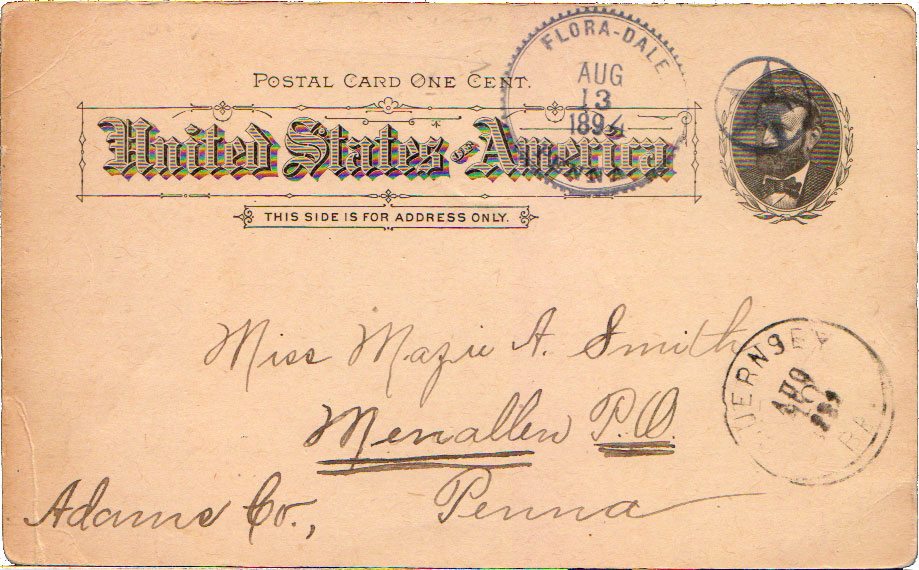 POSTAL CARD ONE CENT.
FLORA-DALE
AUG
13
1894
United States of America
THIS SIDE IS FOR ADDRESS ONLY.
Miss Mazie A. Smith
UERNSEY
PA.
Menallen P.O.
Adams Co., Penna